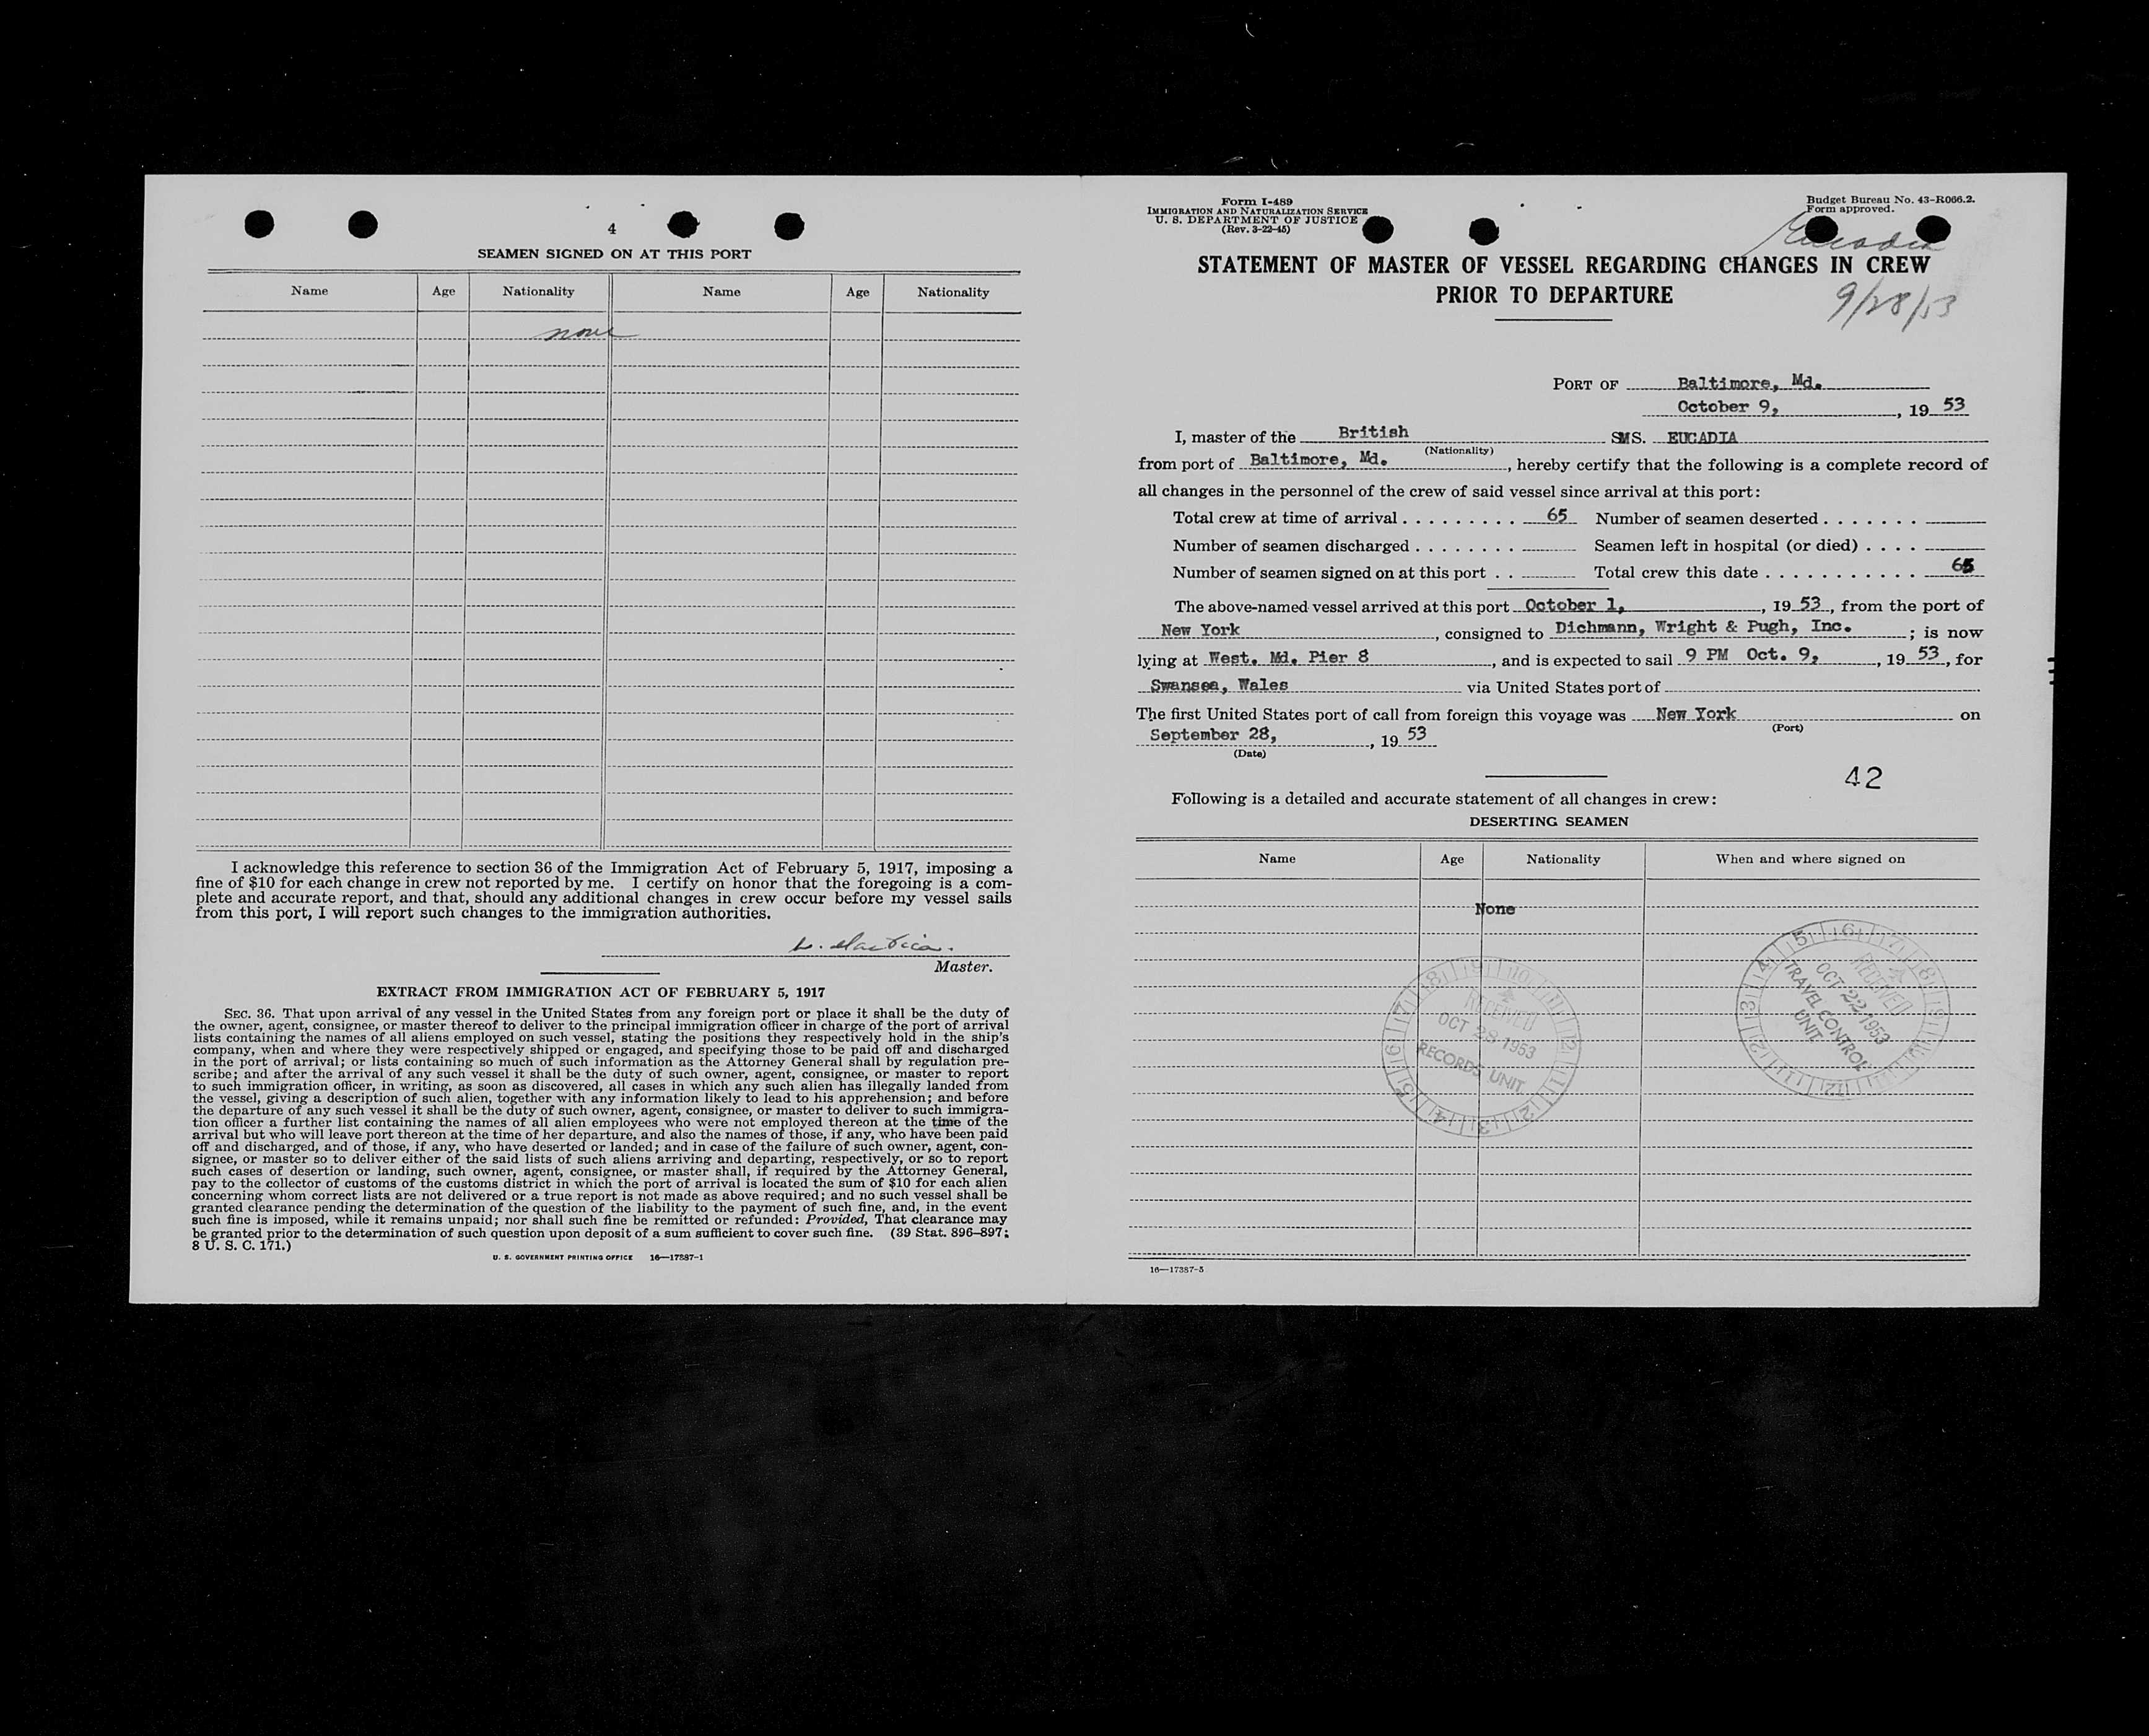 4
SEAMEN SIGNED ON AT THIS PORT
Name Age Nationality Name Age Nationality
none
I acknowledge this reference to section 36 of the Immigration Act of February 5, 1917, imposing a
fine of $10 for each change in crew not reported by me. I certify on honor that the foregoing is a com-
plete and accurate report, and that, should any additional changes in crew occur before my vessel sails
from this port, I will report such changes to the immigration authorities.
Master.
EXTRACT FROM IMMIGRATION ACT OF FEBRUARY 5, 1917
SEC. 36. That upon arrival of any vessel in the United States from any foreign port or place it shall be the duty of
the owner, agent, consignee, or master thereof to deliver to the principal immigration officer in charge of the port of arrival
lists containing the names of all aliens employed on such vessel, stating the positions they respectively hold in the ship's
company, when and where they were respectively shipped or engaged, and specifying those to be paid off and discharged
in the port of arrival; or lists containing so much of such information as the Attorney General shall by regulation pre-
scribe; and after the arrival of any such vessel it shall be the duty of such owner, agent, consignee, or master to report
to such immigration officer, in writing, as soon as discovered, all cases in which any such alien has illegally landed from
the vessel, giving a description of such alien, together with any information likely to lead to his apprehension; and before
the departure of any such vessel it shall be the duty of such owner, agent, consignee, or master to deliver to such immigra-
tion officer a further list containing the names of all alien employees who were not employed thereon at the time of the
arrival but who will leave port thereon at the time of her departure, and also the names of those, if any, who have been paid
off and discharged, and of those, if any, who have deserted or landed; and in case of the failure of such owner, agent, con-
signee, or master so to deliver either of the said lists of such aliens arriving and departing, respectively, or so to report
such cases of desertion or landing, such owner, agent, consignee, or master shall, if required by the Attorney General,
pay to the collector of customs of the customs district in which the port of arrival is located the sum of $10 for each alien
concerning whom correct lists are not delivered or a true report is not made as above required; and no such vessel shall be
granted clearance pending the determination of the question of the liability to the payment of such fine, and, in the event
such fine is imposed, while it remains unpaid; nor shall such fine be remitted or refunded: Provided, That clearance may
be granted prior to the determination of such question upon deposit of a sum sufficient to cover such fine. (39 Stat. 896-897;
8 U. S. C. 171.)
U. S. GOVERNMENT PRINTING OFFICE 16—17387-1
Form I-489
IMMIGRATION AND NATURALIZATION SERVICE
U. S. DEPARTMENT OF JUSTICE
(Rev. 3-22-45)
Budget Bureau No. 43-R066.2.
Form approved.
Eucadia
STATEMENT OF MASTER OF VESSEL REGARDING CHANGES IN CREW
PRIOR TO DEPARTURE
9/28/53
PORT OF Baltimore, Md.
October 9, , 19 53
I, master of the British SMS. EUCADIA
(Nationality)
from port of Baltimore, Md. , hereby certify that the following is a complete record of
all changes in the personnel of the crew of said vessel since arrival at this port:
Total crew at time of arrival . . . . . . . . . 65 Number of seamen deserted . . . . . . .
Number of seamen discharged . . . . . . . . Seamen left in hospital (or died) . . . .
Number of seamen signed on at this port . . Total crew this date . . . . . . . . . . . 65
The above-named vessel arrived at this port October 1, , 19 53 , from the port of
New York , consigned to Dichmann, Wright & Pugh, Inc. ; is now
lying at West. Md. Pier 8 , and is expected to sail 9 PM Oct. 9, , 19 53 , for
Swansea, Wales via United States port of .
The first United States port of call from foreign this voyage was New York on
(Port)
September 28, , 19 53
(Date)
42
Following is a detailed and accurate statement of all changes in crew:
DESERTING SEAMEN
Name Age Nationality When and where signed on
None
RECEIVED
OCT 28 1953
RECORDS UNIT
RECEIVED
OCT 22 1953
TRAVEL CONTROL
UNIT
16—17387-5